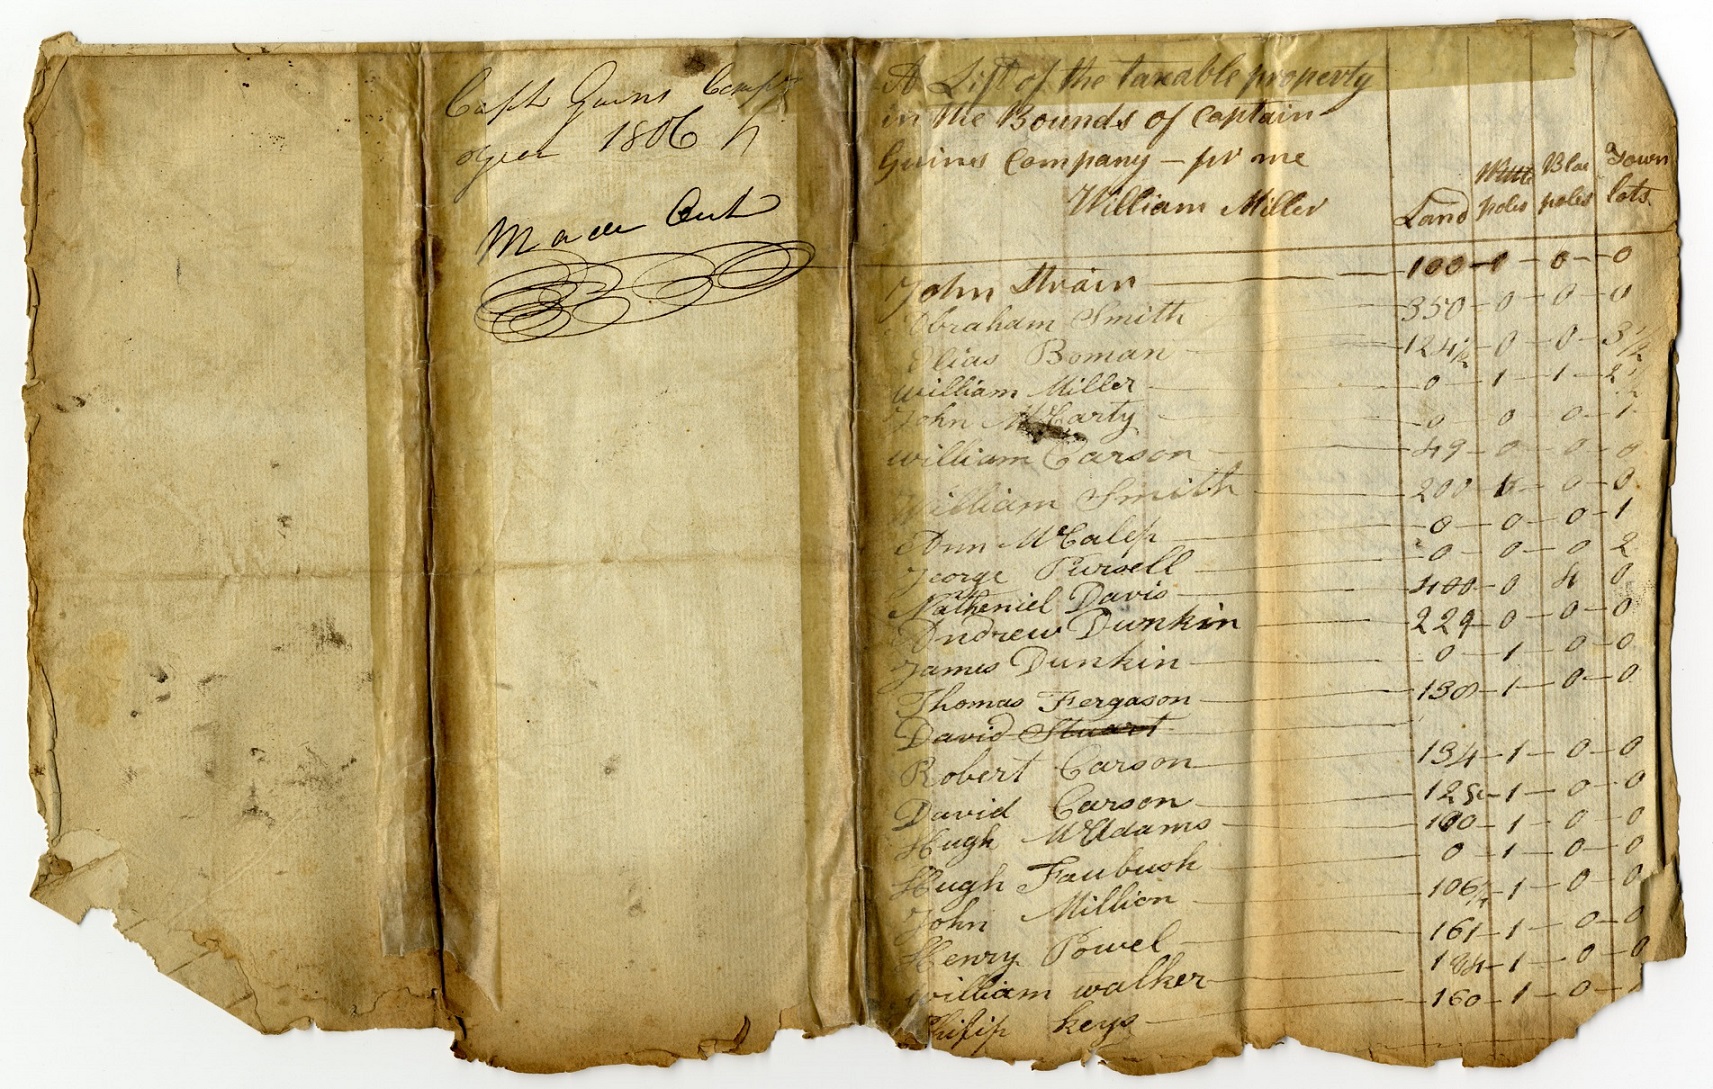 Capt Gains Compy
year 1806
Made Out
A List of the taxable property
in the Bounds of Captain
Gains Company — pr me
William Miller
Land White poles Blac poles Town lots
John Strain 100 – 1 – 0 – 0
Abraham Smith 350 – 0 – 0 – 0
Elias Boman 124 1/2 – 0 – 0 – 3 1/2
William Miller 0 – 1 – 1 – 2 1/2
John McCarty 0 0 0 – 1
William Carson 49 – 0 – 0 – 0
William Smith 200 – 1 – 0 – 0
Ann McCalep 0 – 0 – 0 – 1
George Pursell 0 – 0 – 0 2
Natheniel Davis 400 – 0 4 0
Andrew Dunkin 229 – 0 – 0 – 0
James Dunkin 0 – 1 – 0 – 0
Thomas Fergason 130 – 1 – 0 – 0
David Stuart
Robert Carson 134 – 1 – 0 – 0
David Carson 125 – 1 – 0 – 0
Hugh McAdams 100 – 1 – 0 – 0
Hugh Faubush 0 – 1 – 0 – 0
John Million 106 1/2 – 1 – 0 – 0
Henry Powel 161 – 1 – 0 – 0
William walker 184 – 1 – 0 – 0
Philip keys 160 – 1 – 0 –